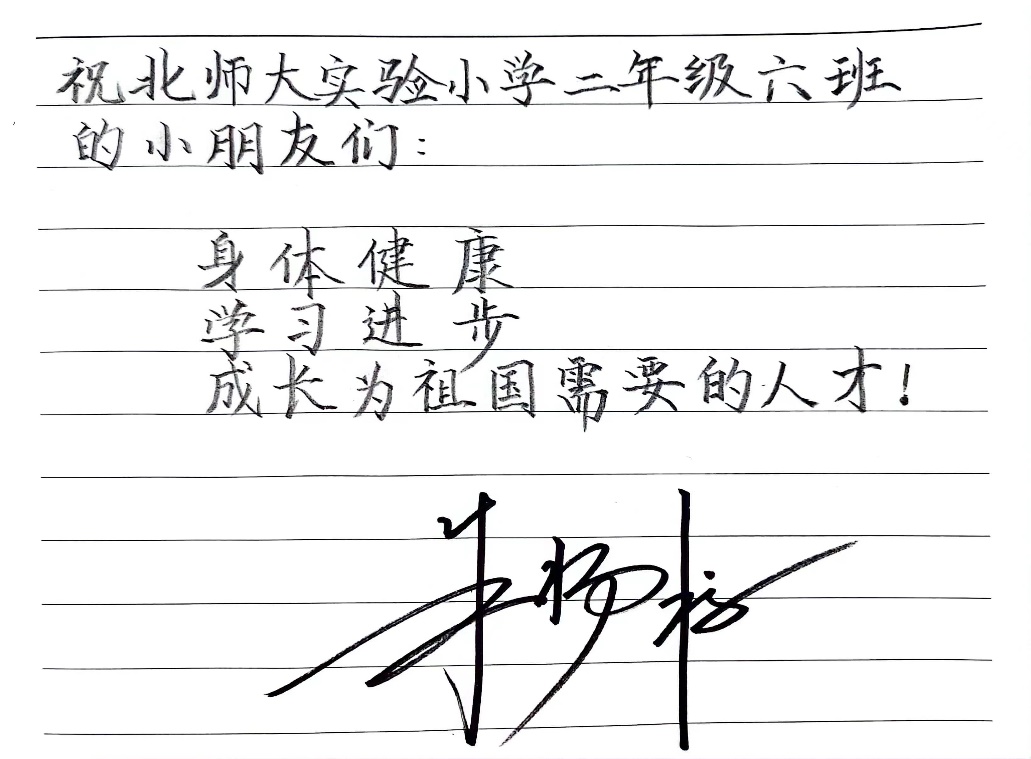 祝北师大实验小学二年级六班
的小朋友们：
身体健康
学习进步
成长为祖国需要的人才！